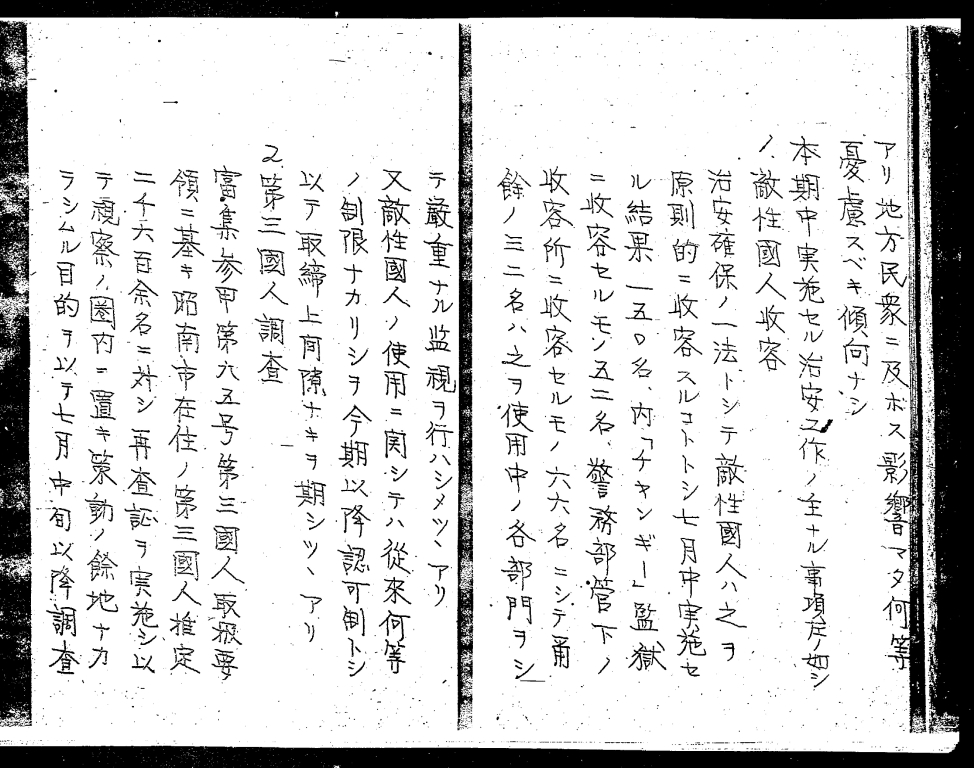 アリ地方民衆ニ及ボス影響マタ何等
憂慮スベキ傾向ナシ
本期中実施セル治安工作ノ主ナル事項左ノ如シ
1. 敵性國人收容
治安確保ノ一法トシテ敵性國人ハ之ヲ
原則的ニ收容スルコトトシ七月中実施セ
ル結果一五〇名、内「チャンギー」監獄
ニ收容セルモノ五二名、警務部管下ノ
收容所ニ收容セルモノ六六名ニシテ爾
餘ノ三二名ハ之ヲ使用中ノ各部門ヲシ
テ嚴重ナル监視ヲ行ハシメツヽアリ
又敵性國人ノ使用ニ関シテハ從來何等
ノ制限ナカリシヲ今期以降認可制トシ
以テ取締上间隙ナキヲ期シツヽアリ
2. 第三國人調査
富集参甲第六五号第三國人取扱要
領ニ基キ昭南市在住ノ第三國人推定
二千六百余名ニ対シ再査証ヲ実施シ以
テ視察ノ圏内ニ置キ策動ノ餘地ナカ
ラシムル目的ヲ以テ七月中旬以降調査